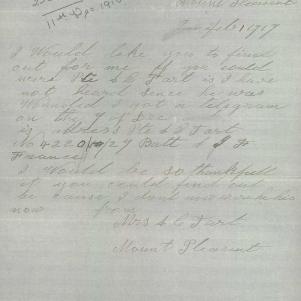 11th Dec 1916
Mount Pleasant
Feb 1 1917
I Would like you to find
out for me if you could
were Pte S C Tart is I have
not heard since he was
Wounded I got a telegram
on the 9 of Dec
is address Pte S C Tart
No 4220 27 Batt
France
I Would be so thankfull
if you could find out
be cause I dont no were he is
now from
Mrs S C Tart
Mount Pleasant